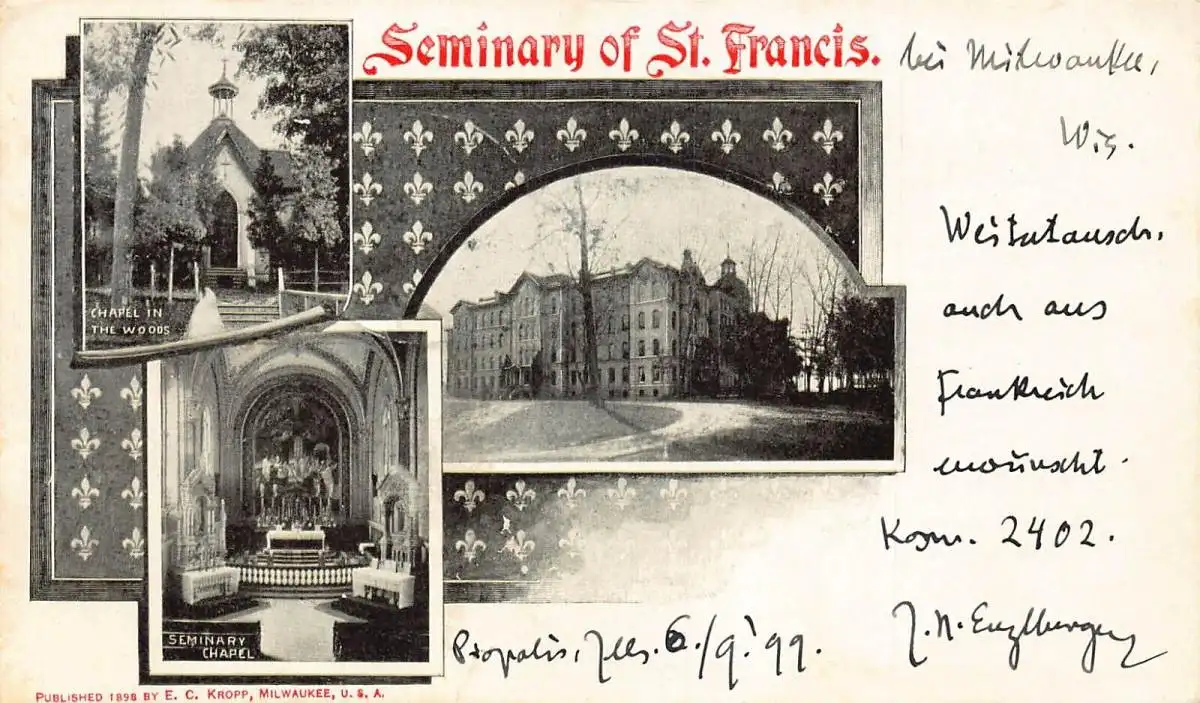 Seminary of St. Francis.
bei Milwaukee,
Wis.
CHAPEL IN
THE WOODS
Weitertausch.
auch aus
Frankreich
erwünscht.
Kosm. 2402.
SEMINARY
CHAPEL
Piopolis, Ills. 6./9. 99.
J. N. Enzlberger
PUBLISHED 1898 BY E. C. KROPP, MILWAUKEE, U. S. A.